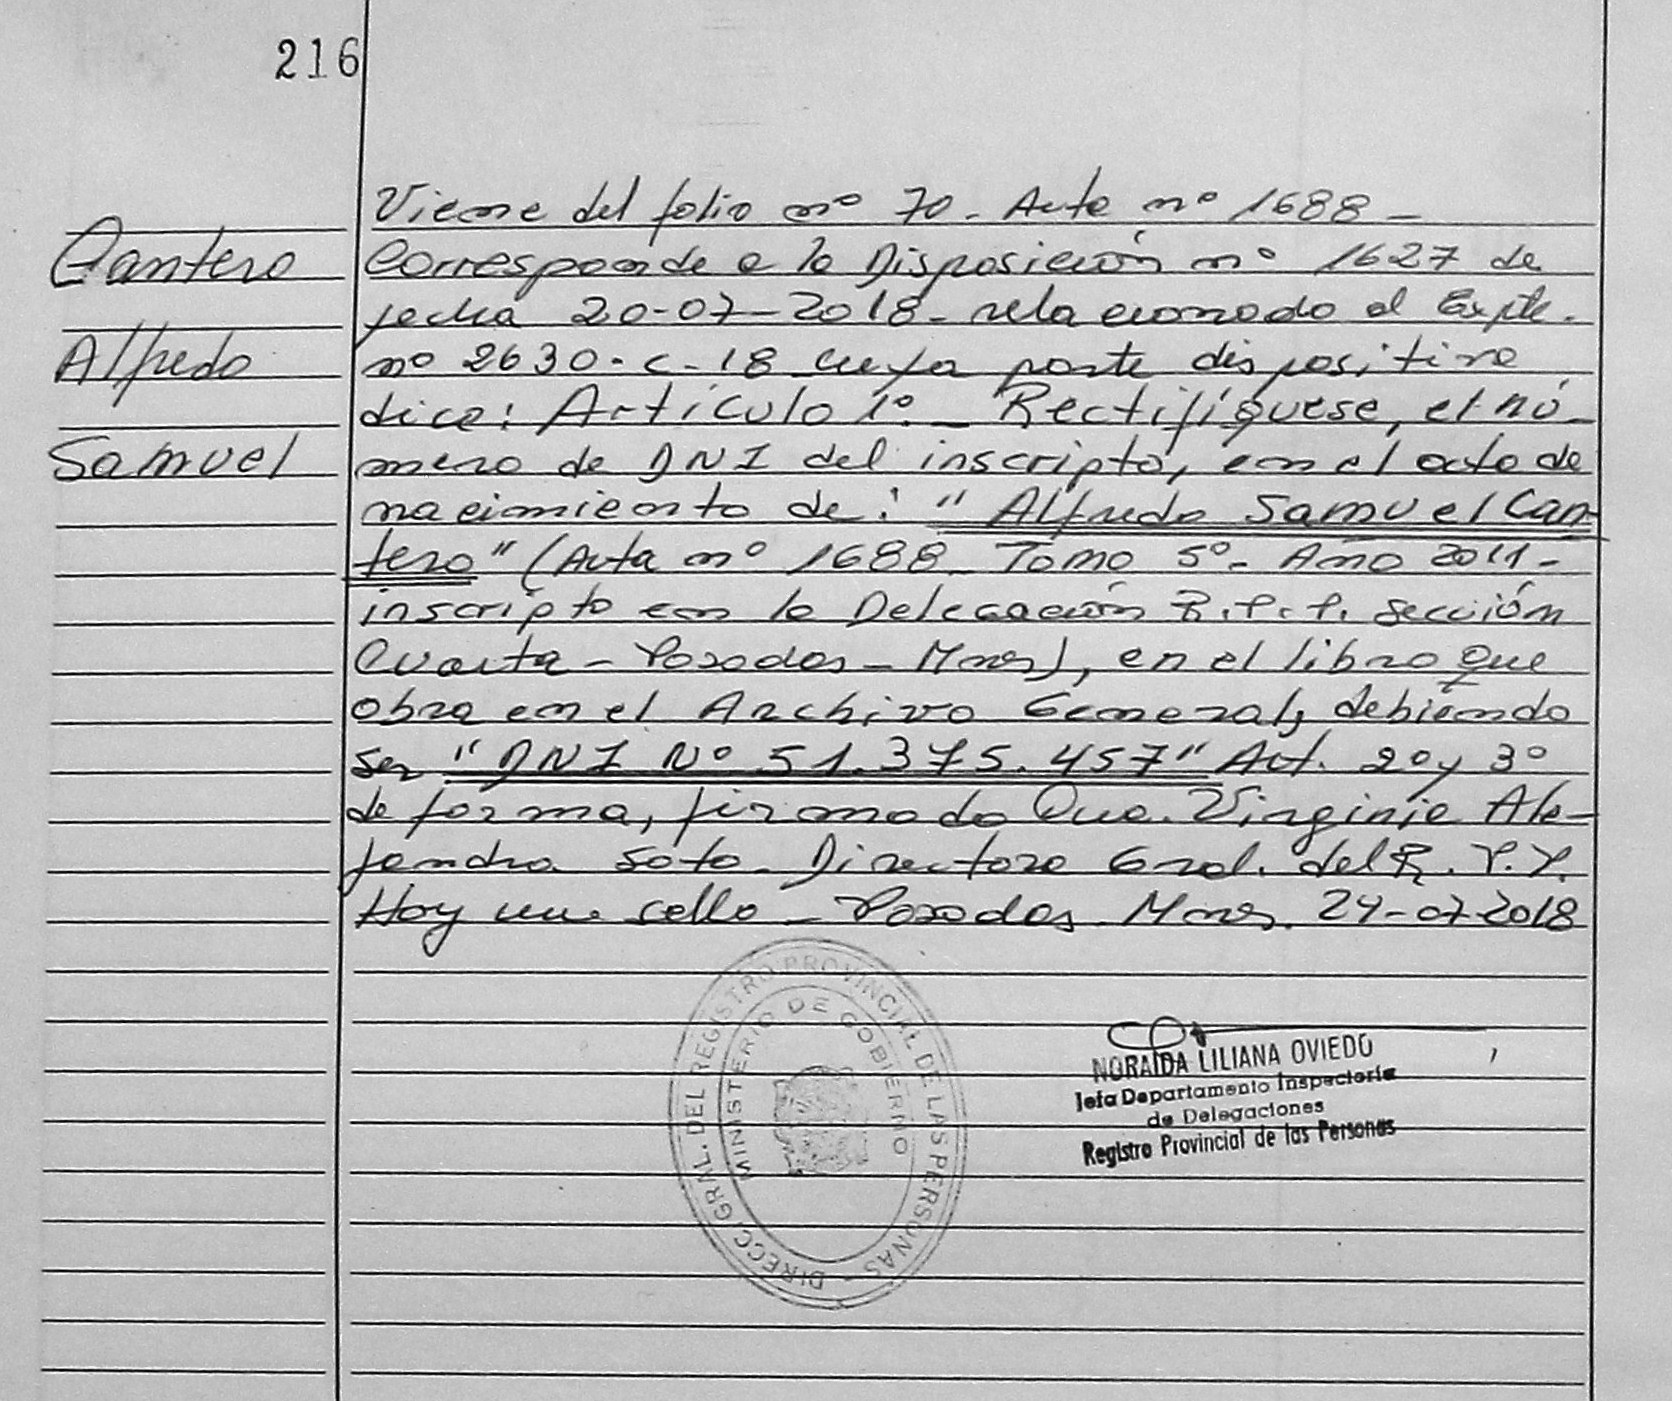 216
Cantero
Alfredo
Samuel
Viene del folio nº 70 - Acta nº 1688 -
Corresponde a la Disposición nº 1627 de
fecha 20-07-2018 - relacionado al Expte.
nº 2630-C-18 cuya parte dispositiva
dice: Artículo 1º - Rectifíquese, el nú-
mero de DNI del inscripto, en el acta de
nacimiento de: "Alfredo Samuel Can-
tero" (Acta nº 1688 Tomo 5º - Año 2011 -
inscripto en la Delegación R.P.P. Sección
Cuarta - Posadas - Mnes), en el libro que
obra en el Archivo General, debiendo
ser "DNI Nº 51.375.457" Art. 2º y 3º
de forma, firmado Virginia Ale-
jandra Soto - Directora Gral. del R.P.P.
Hay un sello - Posadas Mnes. 24-07-2018
DIRECC. GRAL. DEL REGISTRO PROVINCIAL DE LAS PERSONAS -
MINISTERIO DE GOBIERNO
NORAIDA LILIANA OVIEDO
Jefa Departamento Inspectoría
de Delegaciones
Registro Provincial de las Personas